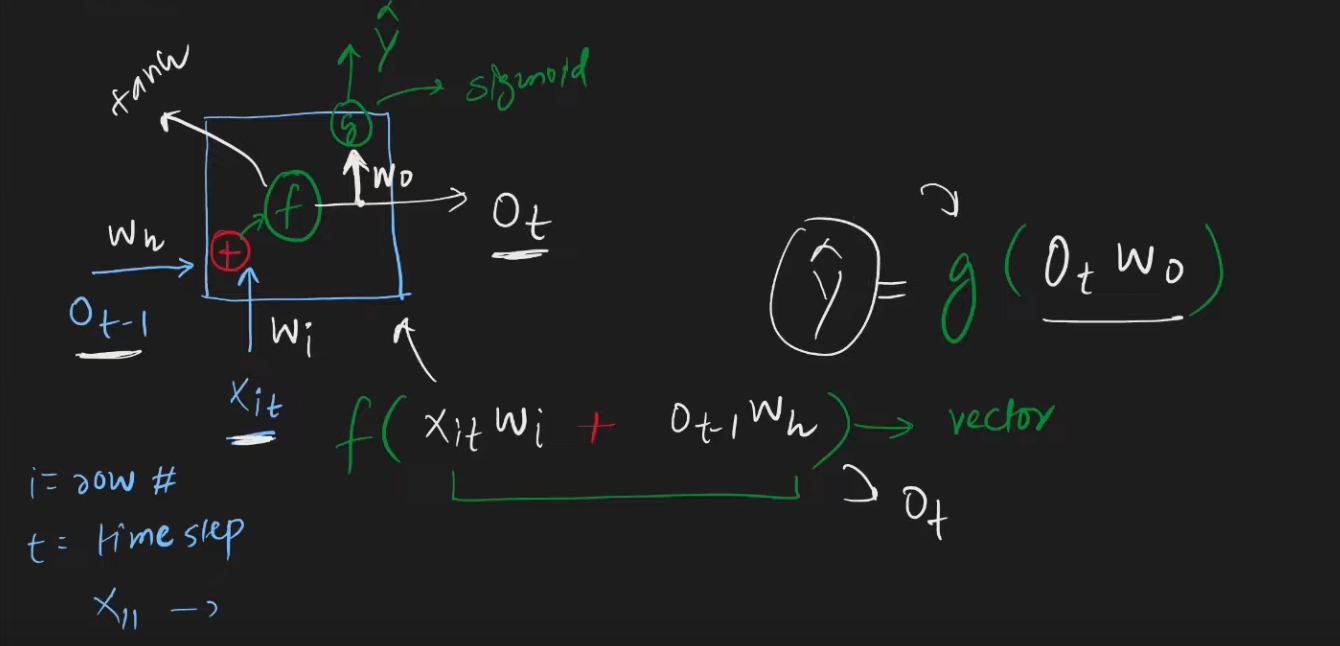 Ŷ
tanh
sigmoid
g
f
Wo
Ot
Wh
+
Ot-1
Wi
Xit
Ŷ = g ( Ot Wo )
f( Xit Wi + Ot-1 Wh ) → vector
Ot
i = row #
t = time step
X11 →